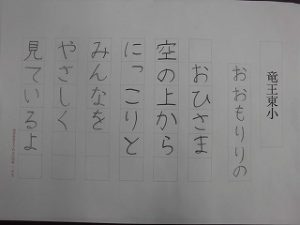 竜王東小
おおもりりの
おひさま
空の上から
にっこりと
みんなを
やさしく
見ているよ